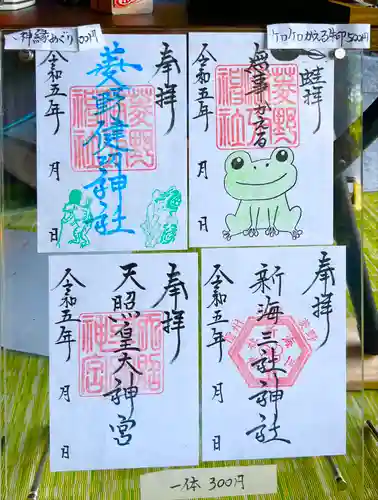 神縁めぐり100円
ケロケロかえる朱印500円
奉拝
菱野健功神社
菱野
神社
令和五年 月 日
蛙拝
無事かえる
菱野
神社
令和五年 月 日
奉拝
天照皇大神宮
天照
神宮
令和五年 月 日
奉拝
新海三社神社
令和五年 月 日
一体 300円